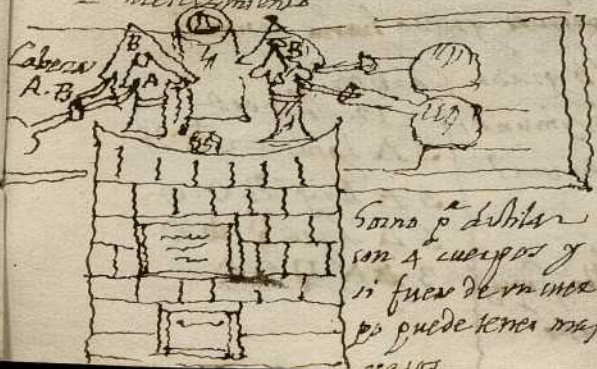 Cabeza
A. B
B
A
A
B
A
Horno pª distilar
son 4 cuerpos y
si fuese de un cuer
po puede tener mas